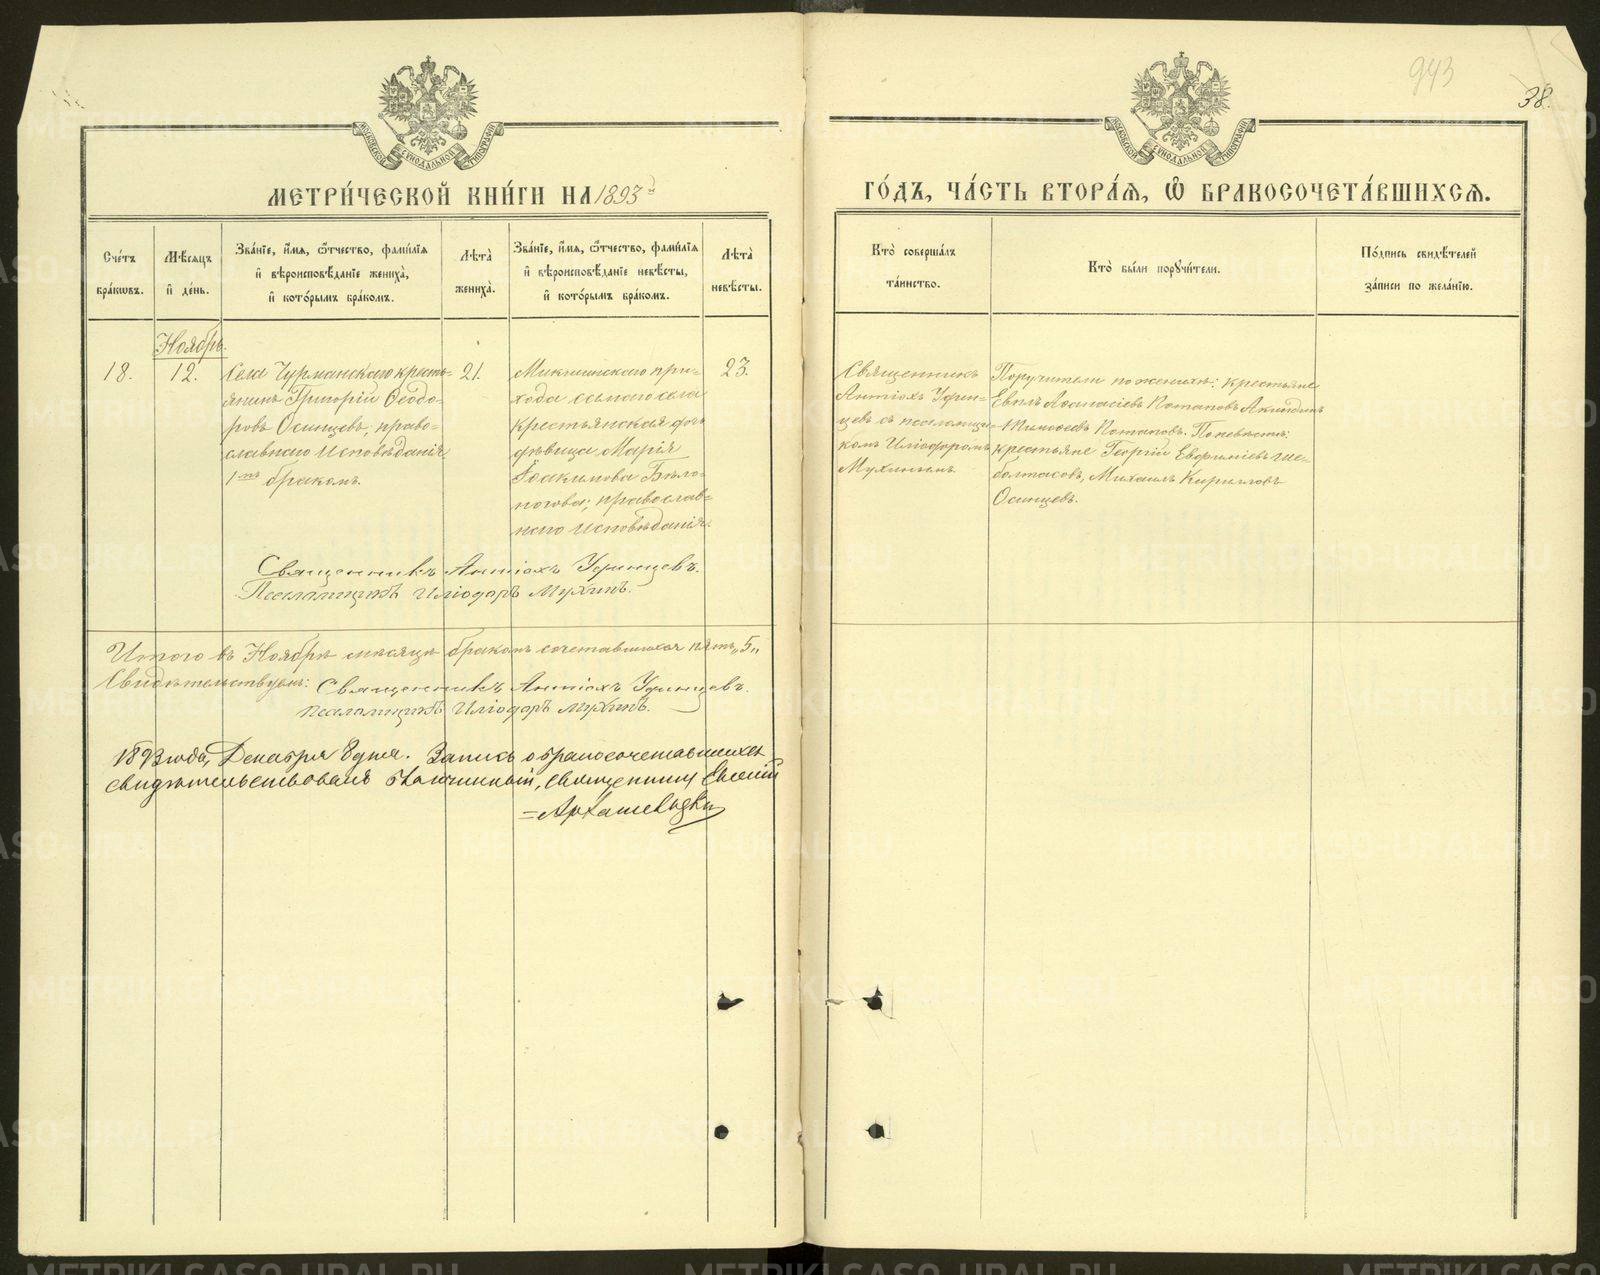 943
38.
МОСКОВСКОЙ СѴНОДАЛЬНОЙ ТИПОГРАФІИ
МОСКОВСКОЙ СѴНОДАЛЬНОЙ ТИПОГРАФІИ
МЕТРИ́ЧЕСКОЙ КНИ́ГИ НА 1893й
ГО́ДЪ, ЧА́СТЬ ВТОРА́Ѧ, Ѽ БРАКОСОЧЕТА́ВШИХСѦ.
Сче́тъ
бра́кѡвъ.
Мѣ́сѧцъ
и҆ де́нь.
Зва́нїе, и҆́мѧ, ѻ҆́тчество, фами́лїѧ
и҆ вѣроисповѣ́данїе жениха̀,
и҆ кото́рымъ бра́комъ.
Лѣ́та
жениха̀.
Зва́нїе, и҆́мѧ, ѻ҆́тчество, фами́лїѧ
и҆ вѣроисповѣ́данїе невѣ́сты,
и҆ кото́рымъ бра́комъ.
Лѣ́та
невѣ́сты.
Кто̀ соверша́лъ
та́инство.
Кто̀ бы́ли порꙋчи́тели.
По́дпись свидѣ́телей
за́писи по жела́нїю.
Ноябрь.
18.
12.
Села Чурманскаго кресть-
янинъ Григорій Ѳеодо-
ровъ Осинцевъ, право-
славнаго Исповѣданія
1мъ бракомъ.
21.
прихода
села
крестьянская
дѣвица Марія
Іоакимова Бѣло-
ногова; православ-
наго Исповѣданія.
23.
Священникъ
Антіохъ Удин-
цевъ съ псаломщи-
комъ Иліодоромъ
Мухинымъ
Поручители по женихѣ: крестьяне
Евпл Аѳанасіевъ Потаповъ, Акиндинъ
Тимоѳеевъ Потаповъ. По невѣстѣ:
крестьяне Георгій Евѳиміевъ Ше-
болтасовъ, Михаилъ Кирилловъ
Осинцевъ.
Священникъ Антіохъ Удинцевъ.
Псаломщикъ Иліодоръ Мухинъ.
Итого въ Ноябрѣ мѣсяцѣ бракомъ сочетавшихся пять „5„
Свидѣтельствуемъ: Священникъ Антіохъ Удинцевъ.
Псаломщикъ Иліодоръ Мухинъ.
1893 года, Декабря 8 дня. Запись о бракосочетавшихся
свидѣтельствовалъ Благочинный, Священникъ Евгеній
METRIKI.GASO-URAL.RU